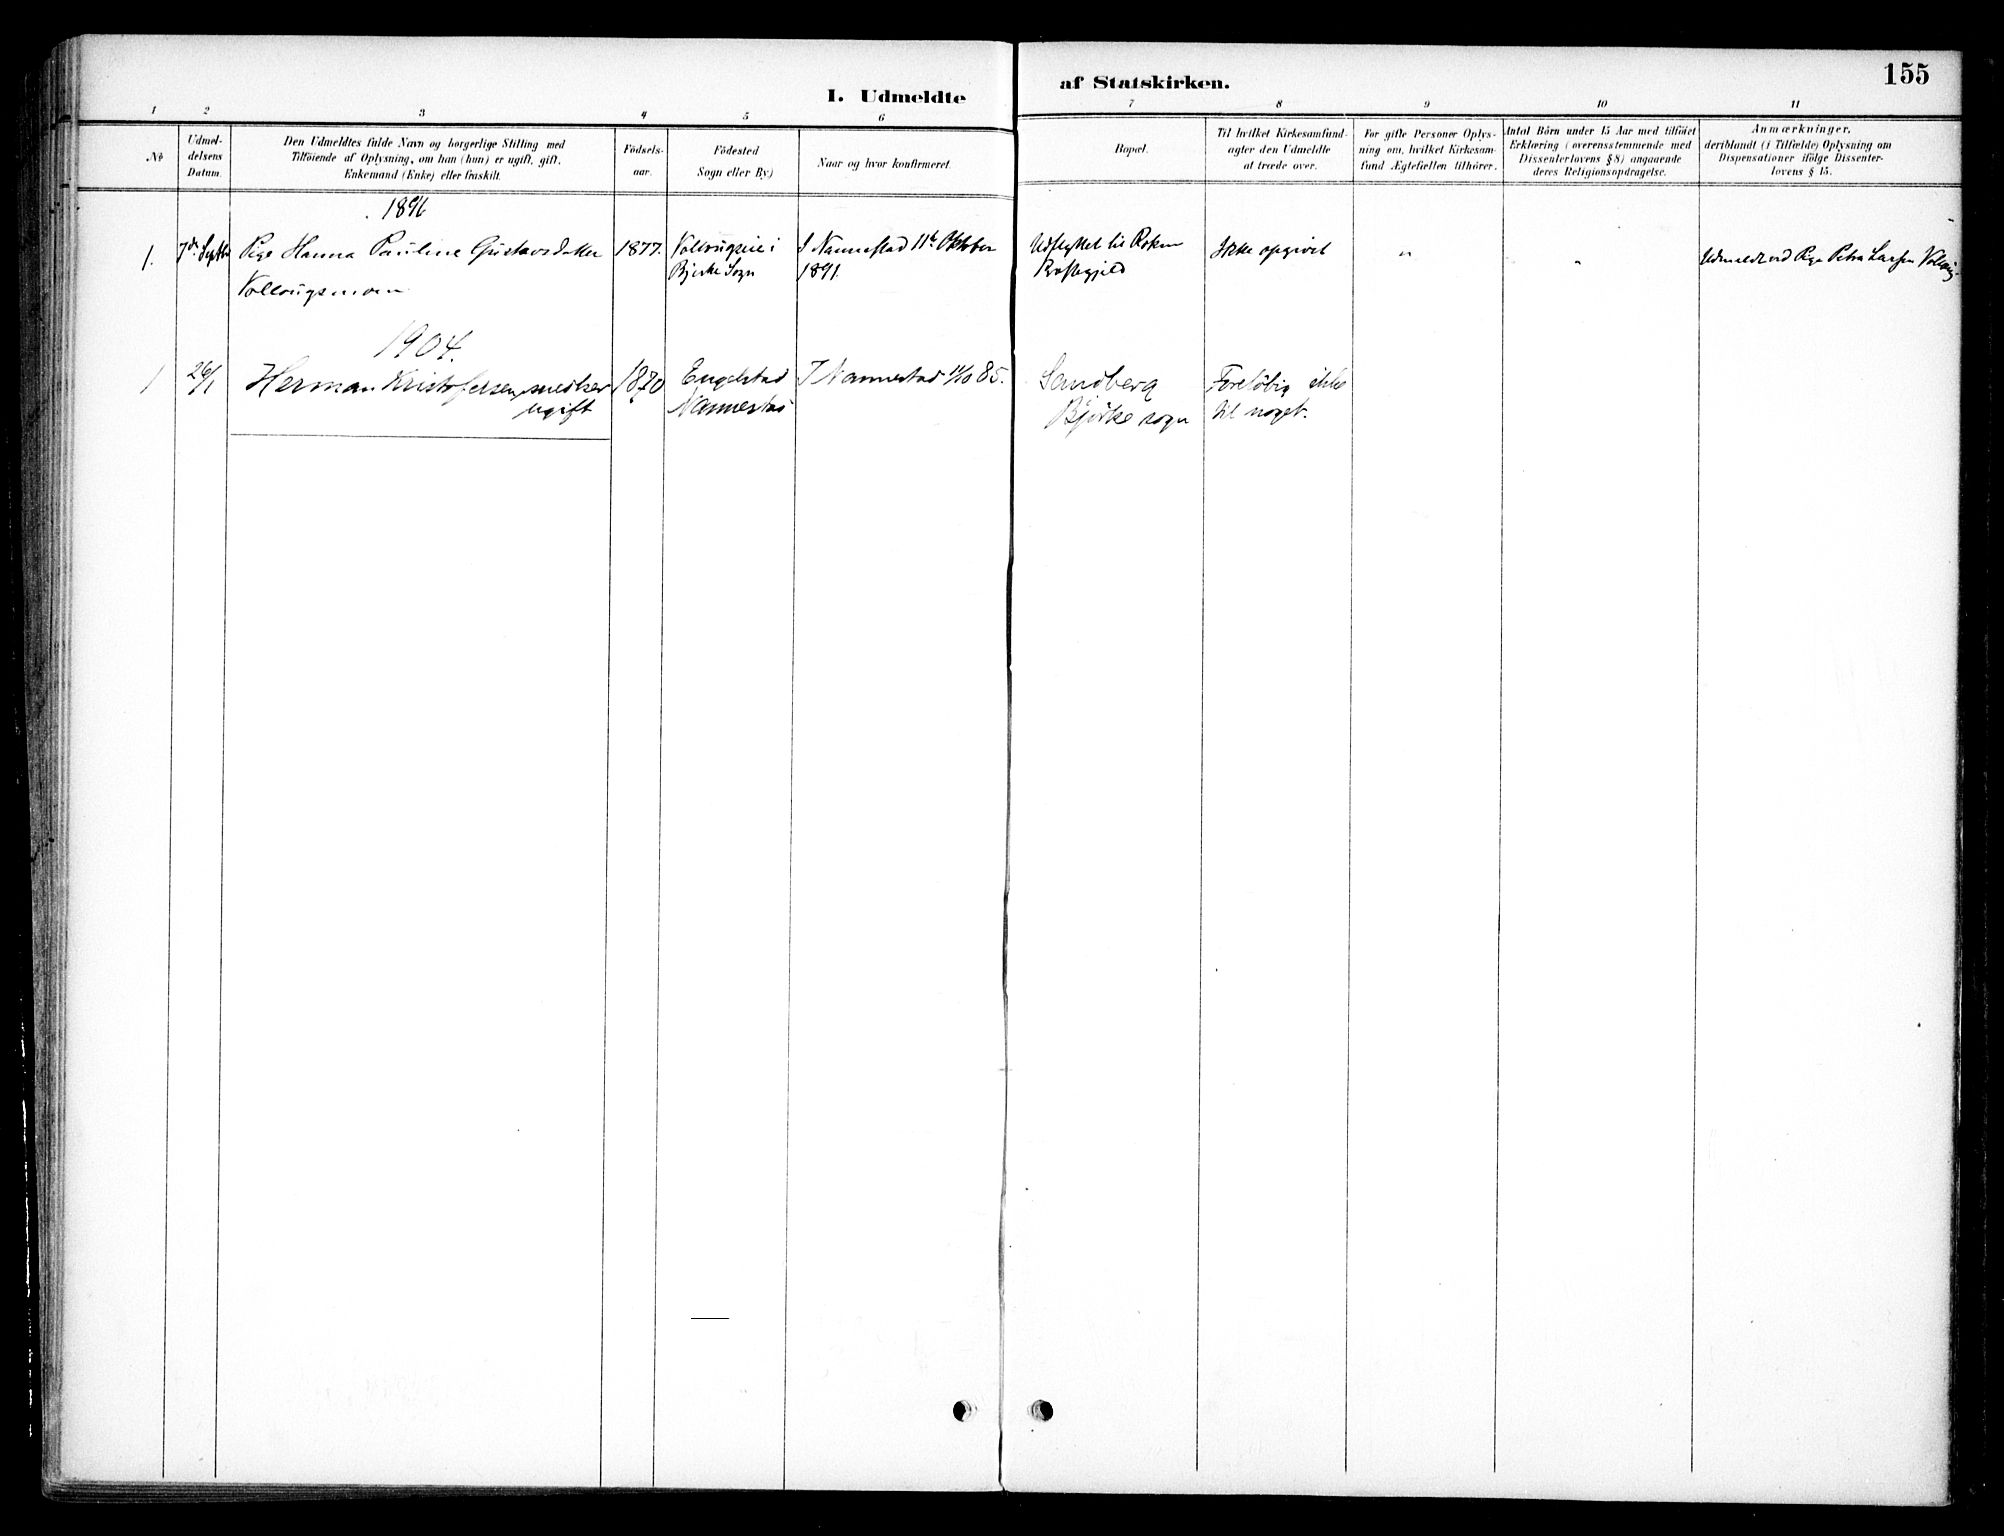 155
I. Udmeldte af Statskirken.
1 2 3 4 5 6 7 8 9 10 11
No
Udmel-
delsens
Datum.
Den Udmeldtes fulde Navn og borgerlige Stilling med
Tilföiende af Oplysning, om han (hun) er ugift, gift,
Enkemand (Enke) eller fraskilt.
Födsels-
aar.
Födested
Sogn eller By)
Naar og hvor konfirmeret.
Bopæl.
Til hvilket Kirkesamfund
agter den Udmeldte
at træde over.
For gifte Personer Oplys-
ning om, hvilket Kirkesam-
fund Ægtefællen tilhörer.
Antal Börn under 15 Aar med tilföiet
Erklæring (overensstemmende med
Dissenterlovens § 8) angaaende
deres Religionsopdragelse.
Anmærkninger,
deriblandt (i Tilfælde) Oplysning om
Dispensationer ifölge Dissenter-
lovens § 15.
1896
1.
7de Septbr
Pige Hanna Pauline Gustavsdatter
1877.
Bjerke Sogn
I Nannestad 11te Oktober
1891.
Udflyttet til Röken
Præstegjeld
Ikke opgivet
"
"
Udmeldt ved Pige Petra Larsen
1904.
1
26/1
Herman Kristofersen,
ugift
1870
Engelstad
Nannestad
I Nannestad 11/10 85.
Sandberg
Bjerke sogn
Forelöbig ikke
til noget.